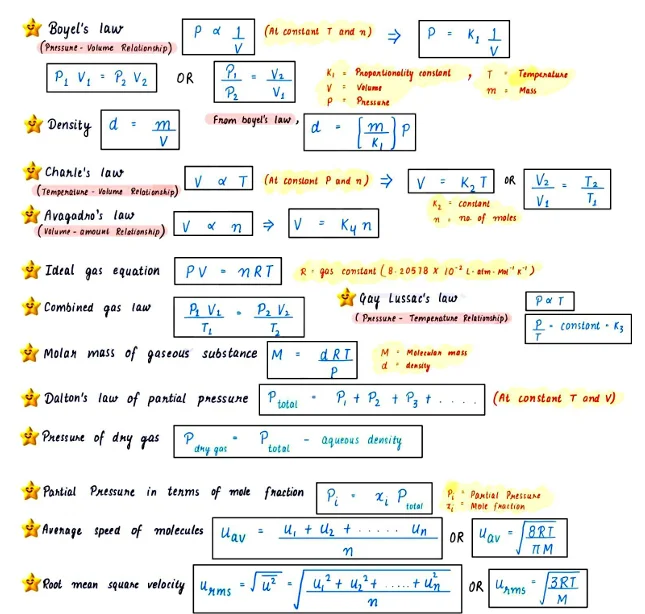 Boyel's law P ∝ 1/V (At constant T and n) ⇒ P = K₁ 1/V
(Pressure - Volume Relationship)
P₁ V₁ = P₂ V₂ OR P₁/P₂ = V₂/V₁
K₁ = Proportionality constant , T = Temperature
V = Volume m = Mass
P = Pressure
Density d = m/V From boyel's law, d = [m/K₁] P
Charle's law V ∝ T (At constant P and n) ⇒ V = K₂ T OR V₂/V₁ = T₂/T₁
(Temperature - Volume Relationship)
K₂ = constant
n = no. of moles
Avagadro's law V ∝ n ⇒ V = K₄ n
(Volume - amount Relationship)
Ideal gas equation PV = nRT R = gas constant (8.20578 X 10⁻² L.atm.Mol⁻¹ K⁻¹)
Combined gas law P₁ V₁/T₁ = P₂ V₂/T₂
Gay Lussac's law P ∝ T
(Pressure - Temperature Relationship) P/T = constant = K₃
Molar mass of gaseous substance M = dRT/P
M = Molecular mass
d = density
Dalton's law of partial pressure P total = P₁ + P₂ + P₃ + .... (At constant T and V)
Pressure of dry gas P dry gas = P total - aqueous density
Partial Pressure in terms of mole fraction Pᵢ = xᵢ P total
Pᵢ = Partial Pressure
xᵢ = Mole fraction
Average speed of molecules u av = u₁ + u₂ + ..... uₙ/n OR u av = √(8RT/πM)
Root mean square velocity u rms = √u² = √(u₁² + u₂² + .... + uₙ²/n) OR u rms = √(3RT/M)